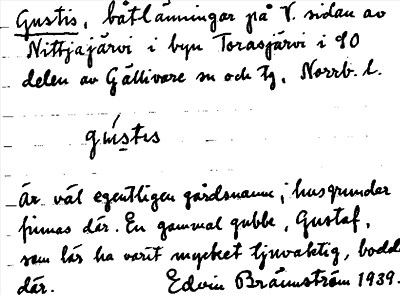 Gustis, båtlänningar på V. sidan av
Nittjajärvi i byn Torasjärvi i SO
delen av Gällivare sn och tg, Norrb. l.
gústis
Är väl egentligen gårdsnamn; husgrunder
finnas där. En gammal gubbe, Gustaf,
som lär ha varit mycket tjuvaktig, bodde
där. Edvin Brännström 1939.